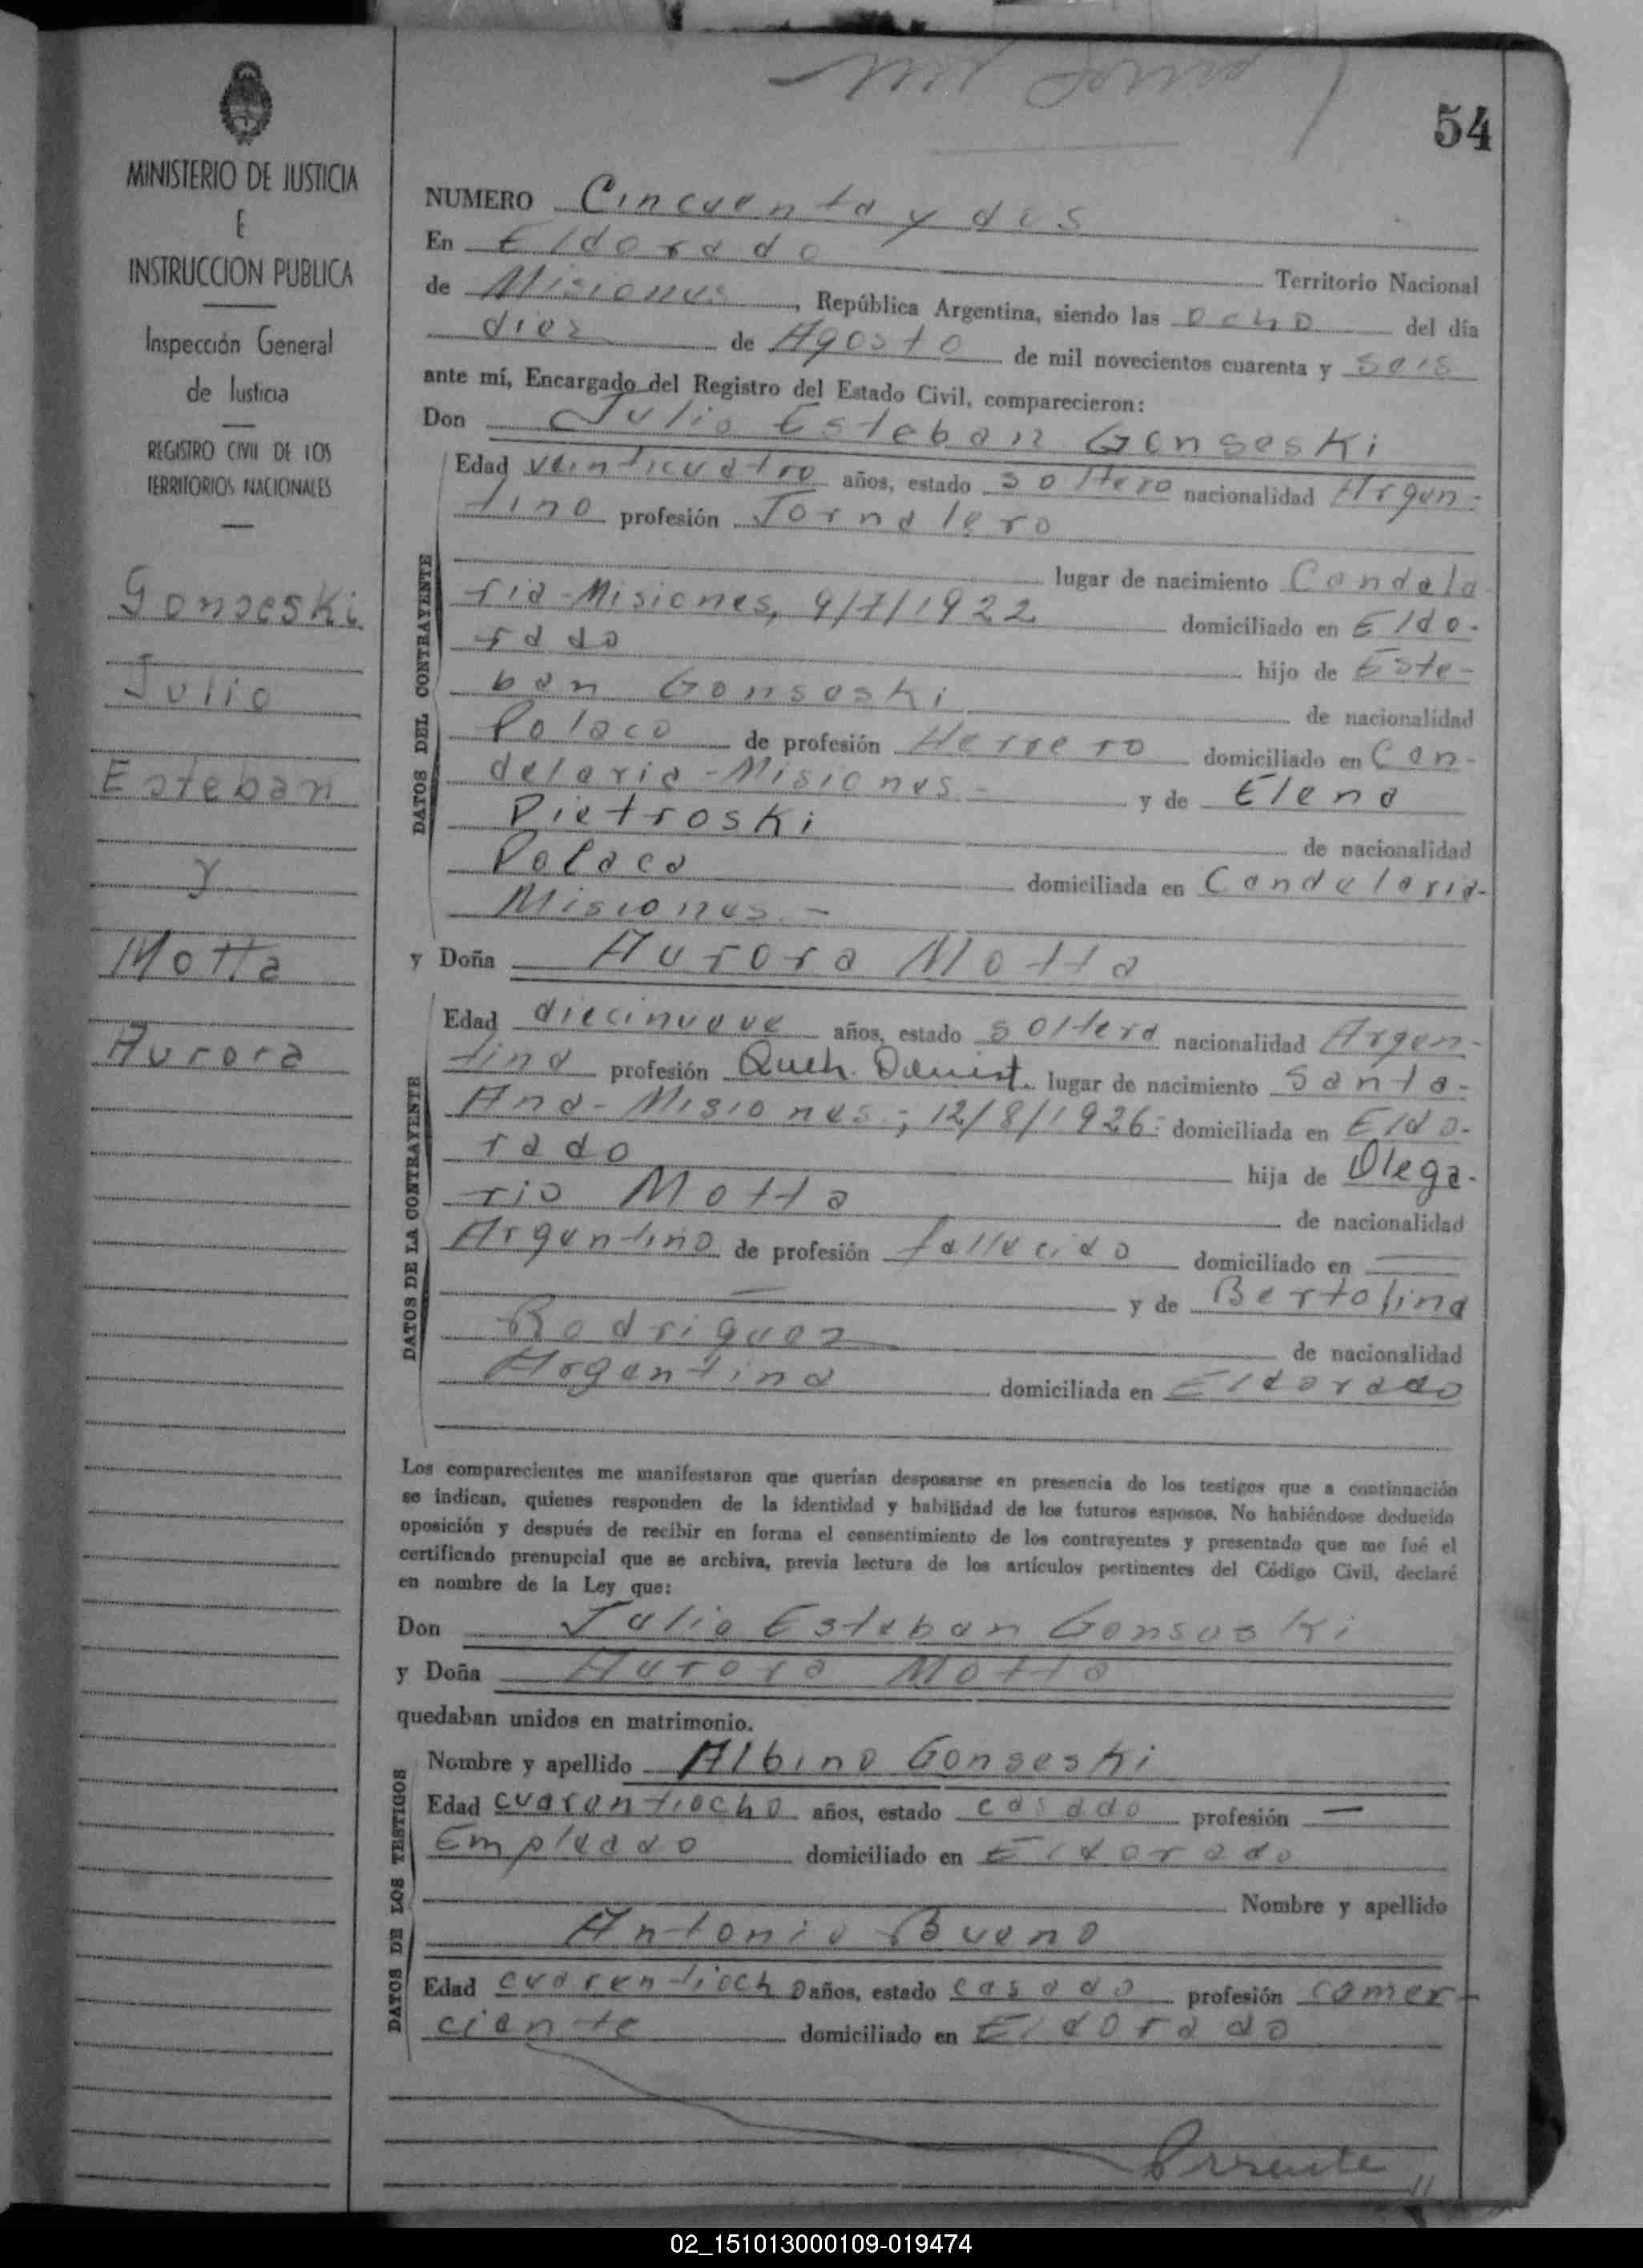 54
MINISTERIO DE JUSTICIA
E
INSTRUCCION PUBLICA
Inspección General
de Justicia
REGISTRO CIVIL DE LOS
TERRITORIOS NACIONALES
Gonseski
Julio
Esteban
y
Motta
Aurora
NUMERO Cincuenta y dos
En Eldorado Territorio Nacional
de Misiones, República Argentina, siendo las ocho del día
diez de Agosto de mil novecientos cuarenta y seis
ante mí, Encargado del Registro del Estado Civil, comparecieron:
Don Julio Esteban Gonseski
DATOS DEL CONTRAYENTE
Edad veinticuatro años, estado soltero nacionalidad Argen-
tino profesión Jornalero
lugar de nacimiento Candela
ria-Misiones, 9/7/1922 domiciliado en Eldo-
rado hijo de Este-
ban Gonseski de nacionalidad
Polaco de profesión Herrero domiciliado en Can-
delaria-Misiones- y de Elena
Pietroski de nacionalidad
Polaca domiciliada en Candelaria-
Misiones.-
y Doña Aurora Motta
DATOS DE LA CONTRAYENTE
Edad diecinueve años, estado soltera nacionalidad Argen-
tina profesión Queh. Domést. lugar de nacimiento Santa-
Ana-Misiones-; 12/8/1926- domiciliada en Eldo-
rado hija de Olega-
rio Motta de nacionalidad
Argentino de profesión fallecido domiciliado en —
— y de Bertolina
Rodriguez de nacionalidad
Argentina domiciliada en Eldorado
Los comparecientes me manifestaron que querían desposarse en presencia de los testigos que a continuación
se indican, quienes responden de la identidad y habilidad de los futuros esposos. No habiéndose deducido
oposición y después de recibir en forma el consentimiento de los contrayentes y presentado que me fué el
certificado prenupcial que se archiva, previa lectura de los artículos pertinentes del Código Civil, declaré
en nombre de la Ley que:
Don Julio Esteban Gonseski
y Doña Aurora Motta
quedaban unidos en matrimonio.
DATOS DE LOS TESTIGOS
Nombre y apellido Albino Gonseski
Edad cuarentiocho años, estado casado profesión —
Empleado domiciliado en Eldorado
Nombre y apellido
Antonio Bueno
Edad cuarentiocho años, estado casado profesión comer-
ciante domiciliado en Eldorado
Presente //
02_151013000109-019474